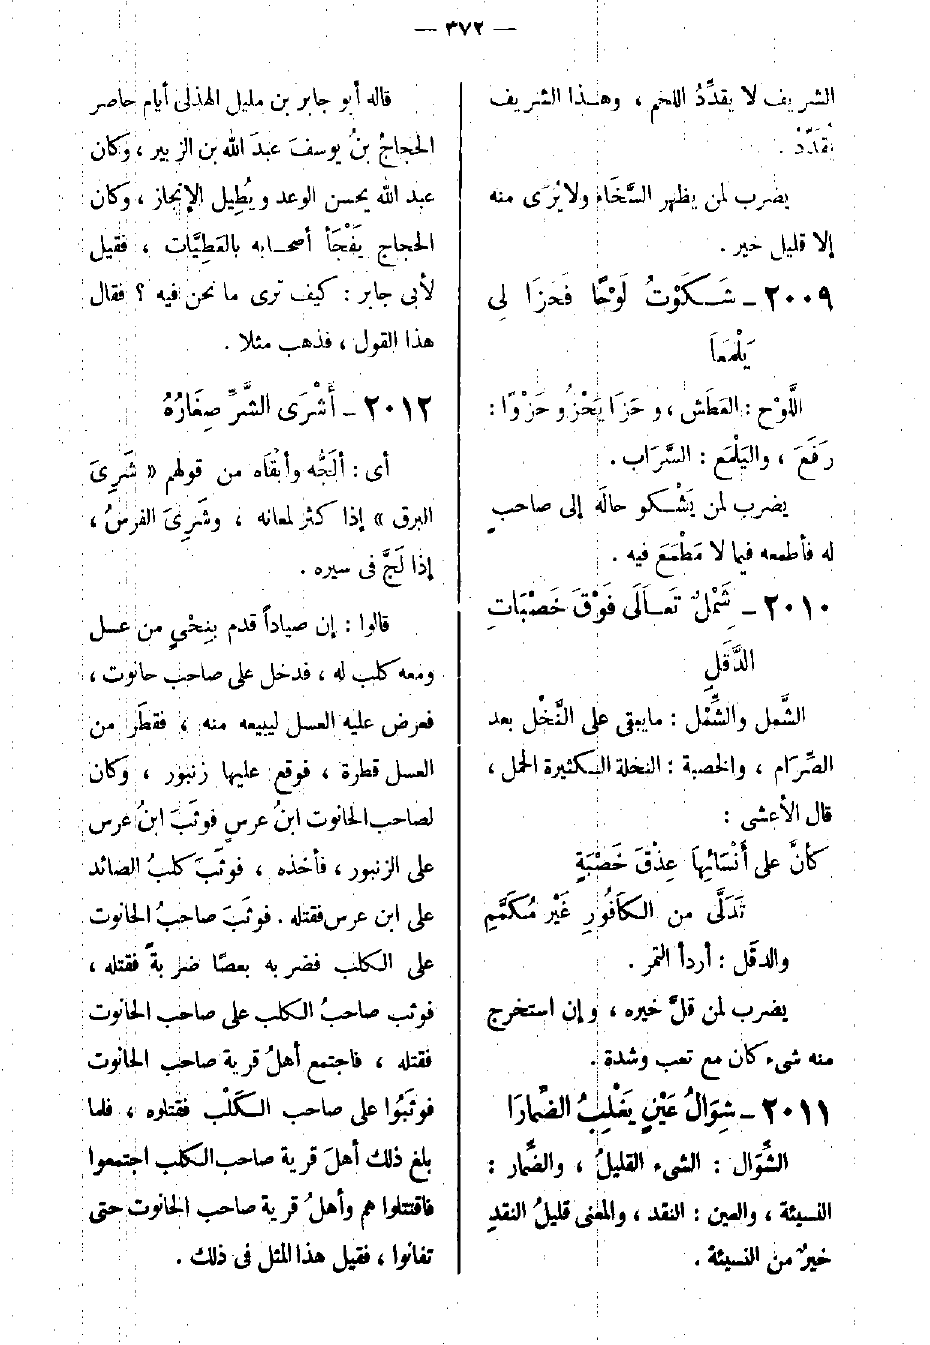 — ٣٧٢ —
الشريف لا يقدِّدُ اللحم ، وهذا الشريف
يُقَدِّدُ .
يضرب لمن يظهر السَّخَاء ولا يُرَى منه
إلا قليل خير .
٢٠٠٩ - شَكَوْتُ لَوْحًا فَحَزَا لِى
يَلْمَعَا
اللَّوْح : العَطَش ، و حَزَا يَحْزُو حَزْوًا :
رَفَعَ ، واليَلْمَع : السَّرَاب .
يضرب لمن يَشْكو حالَه إلى صاحبٍ
له فأطمعه فيما لا مَطْمَعَ فيه .
٢٠١٠ - شَمْلٌ تَعَالَى فَوْقَ خَصْبَاتِ
الدَّقَلِ
الشَّمل والشِّمْل : مايبقى على النَّخْل بعد
الصِّرَام ، والخصبة : النخلة الكثيرة الحمل ،
قال الأعشى :
كأنَّ على أَنْسَائِهَا عِذْقَ خَصْبَةٍ
تَدَلَّى من الكَافُورِ غَيْر مُكَمَّمِ
والدقَل : أردأ التمر .
يضرب لمن قلَّ خيره ، و إن استخرج
منه شىء كان مع تعب وشدة .
٢٠١١ - شِوَالُ عَيْنٍ يَغْلِبُ الضِّمارَا
الشِّوَال : الشىء القليلُ ، والضِّمار :
النسيئة ، والعين : النقد ، والمعنى قليلُ النقدِ
خيرٌ من النسيئة .
قاله أبو جابر بن مليل الهذلى أيام حاصر
الحجاجُ بنُ يوسفَ عبدَ الله بن الزبير ، وكان
عبد الله يحسن الوعد و يُطِيل الإنجاز ، وكان
الحجاج يَفْجَأ أصحابه بالعَطِيَّات ، فقيل
لأبى جابر : كيف ترى ما نحن فيه ؟ فقال
هذا القول ، فذهب مثلا .
٢٠١٢ - أَشْرَى الشَّرِّ صِغَارُهُ
أى : ألَجُّه وأبقَاه من قولهم « شَرِىَ
البرق » إذا كثر لمعانه ، وشَرِىَ الفرسُ ،
إذا لَجَّ فى سيره .
قالوا : إن صياداً قدم بِنِحْىٍ من عسل
ومعه كلب له ، فدخل على صاحب حانوت ،
فعرض عليه العسل ليبيعه منه ، فقطَر من
العسل قطرة ، فوقع عليها زنبور ، وكان
لصاحب الحانوت ابنُ عرسٍ فوثَبَ ابنُ عرس
على الزنبور ، فأخذه ، فوثَبَ كلبُ الصائد
على ابن عرس فقتله . فوثَبَ صاحبُ الحانوت
على الكلب فضربه بعصًا ضربةً فقتله ،
فوثب صاحبُ الكلب على صاحب الحانوت
فقتله ، فاجتمع أهلُ قرية صاحب الحانوت
فوثَبُوا على صاحب الكَلْب فقتلوه ، فلما
بلغ ذلك أهلَ قرية صاحب الكلب اجتمعوا
فاقتتلوا هم وأهلُ قرية صاحب الحانوت حتى
تفانوا ، فقيل هذا المثل فى ذلك .